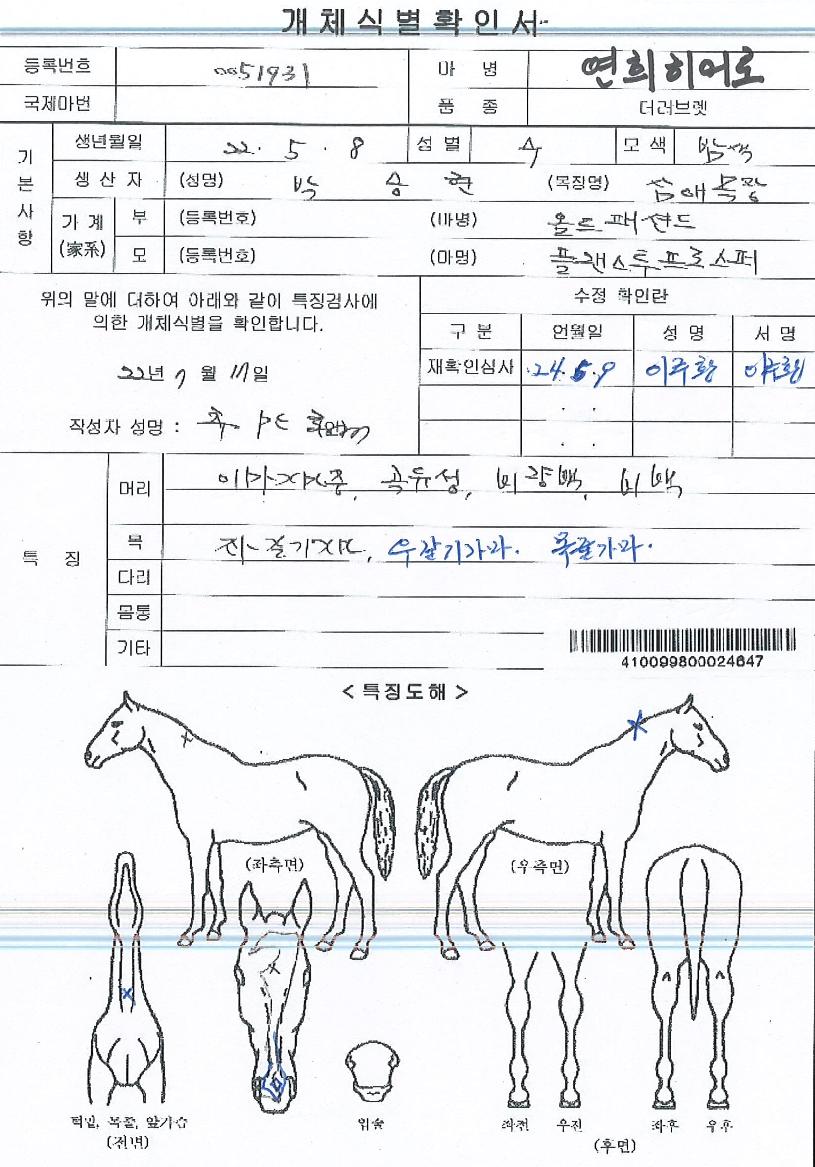 개체식별확인서
등록번호 0051931 마 명 연희히어로
국제마번 품 종 더러브렛
기본사항
생년월일 22. 5. 8 성별 수 모색 밤색
생산자 (성명) 박승현 (목장명) 섬애목장
가계 (家系) 부 (등록번호) (마명) 올드패션드
모 (등록번호) (마명) 플랜스투프로스퍼
위의 말에 대하여 아래와 같이 특징검사에
의한 개체식별을 확인합니다.
22년 7월 11일
작성자 성명 :
수정 확인란
구분 언월일 성명 서명
재확인심사 24.5.9
. .
. .
특 징
머리 이마가마중, 곡유성, 비량백, 비백
목 좌갈기가마, 우갈기가마. 목골가마.
다리
몸통
기타
410099800024647
< 특징도해 >
(좌측면) (우측면)
턱밑, 목줄, 앞가슴
(전면)
입술
좌전 우전 좌후 우후
(후면)